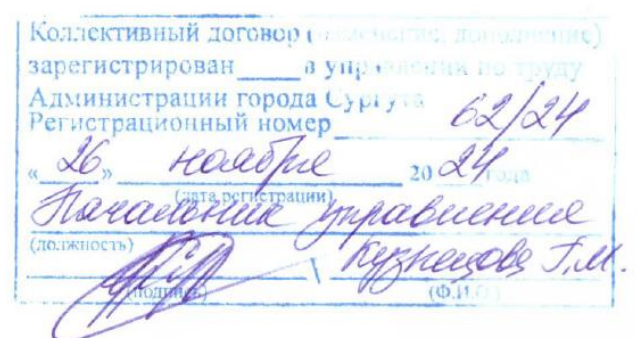 Коллективный договор (изменение, дополнение)
зарегистрирован ____ в управлении по труду
Администрации города Сургута
Регистрационный номер 62/24
« 26 » ноября 20 24 года
(дата регистрации)
Начальник управления
(должность)
\ Кузнецова Г.М.
(подпись) (Ф.И.О.)